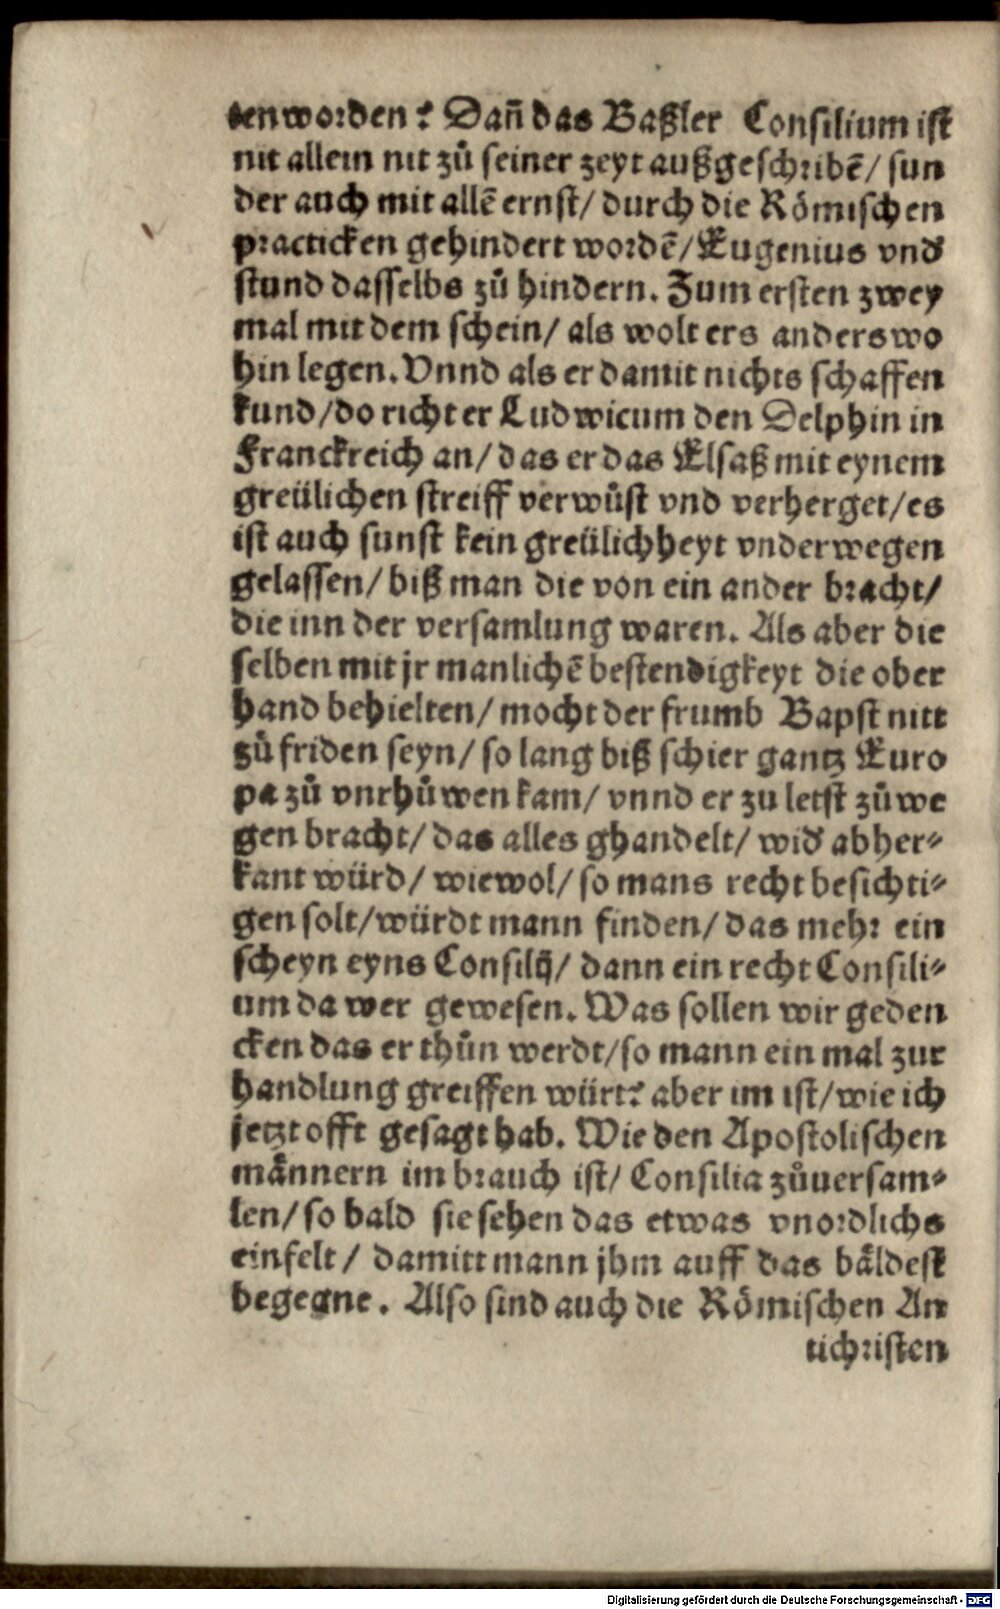 ten worden? Dañ das Baßler Consilium ist
nit allein nit zů seiner zeyt außgeschribẽ/ sun
der auch mit allẽ ernst/ durch die Römischen
practicken gehindert wordẽ/ Eugenius vnd
stund dasselbs zů hindern. Zum ersten zwey
mal mit dem schein/ als wolt ers anderswo
hin legen. Vnnd als er damit nichts schaffen
kund/ do richt er Ludwicum den Delphin in
Franckreich an/ das er das Elsaß mit eynem
greülichen streiff verwůst vnd verherget/ es
ist auch sunst kein greülichheyt vnderwegen
gelassen/ biß man die von ein ander bracht/
die inn der versamlung waren. Als aber die
selben mit jr manlichẽ bestendigkeyt die ober
hand behielten/ mocht der frumb Bapst nitt
zů friden seyn/ so lang biß schier gantz Euro
pa zů vnrhůwen kam/ vnnd er zu letst zů we
gen bracht/ das alles ghandelt/ wid abher⸗
kant würd/ wiewol/ so mans recht besichti⸗
gen solt/ würdt mann finden/ das mehr ein
scheyn eyns Consilij/ dann ein recht Consili⸗
um da wer gewesen. Was sollen wir geden
cken das er thůn werdt/ so mann ein mal zur
handlung greiffen würt? aber im ist/ wie ich
jetzt offt gesagt hab. Wie den Apostolischen
männern im brauch ist/ Consilia zůuersam⸗
len/ so bald sie sehen das etwas vnordlichs
einfelt/ damitt mann jhm auff das bäldest
begegne. Also sind auch die Römischen An
tichristen
Digitalisierung gefördert durch die Deutsche Forschungsgemeinschaft - DFG